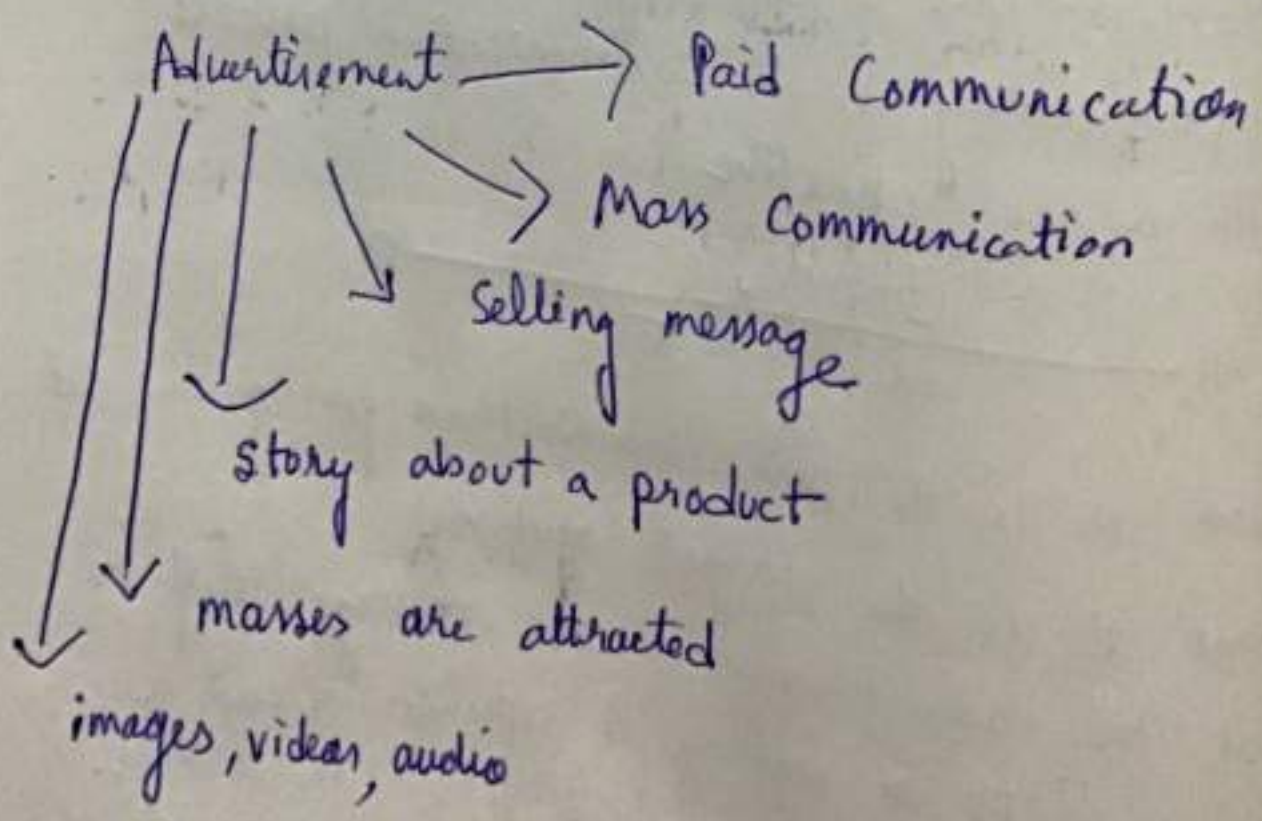 Advertisement → Paid Communication
Mass Communication
Selling message
story about a product
masses are attracted
images, videos, audio